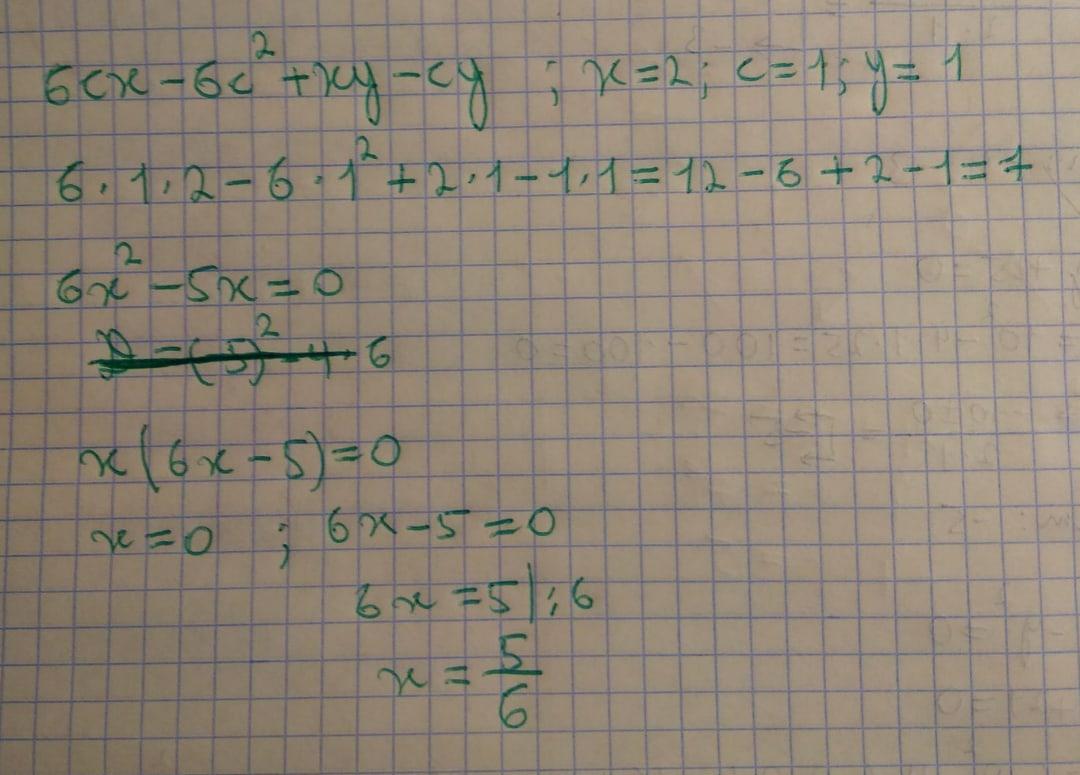 6cx - 6c² + xy - cy ; x = 2; c = 1; y = 1
6 · 1 · 2 - 6 · 1² + 2 · 1 - 1 · 1 = 12 - 6 + 2 - 1 = 7
6x² - 5x = 0
D = (5)² - 4 · 6
x(6x - 5) = 0
x = 0 ; 6x - 5 = 0
6x = 5 | : 6
x = 5/6